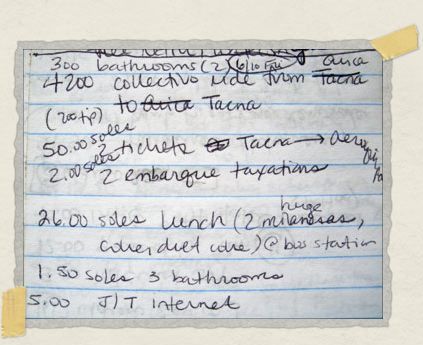 300 bathrooms (2) Arica
4200 collectivo ride from Tacna
to Arica Tacna
(200 tip)
50.00 soles 2 tickets Tacna → Arequipa
2.00 soles 2 embarque taxations
26.00 soles lunch (2 huge milanesas,
coke, diet coke) @ bus station
1.50 soles 3 bathrooms
5.00 J/T internet